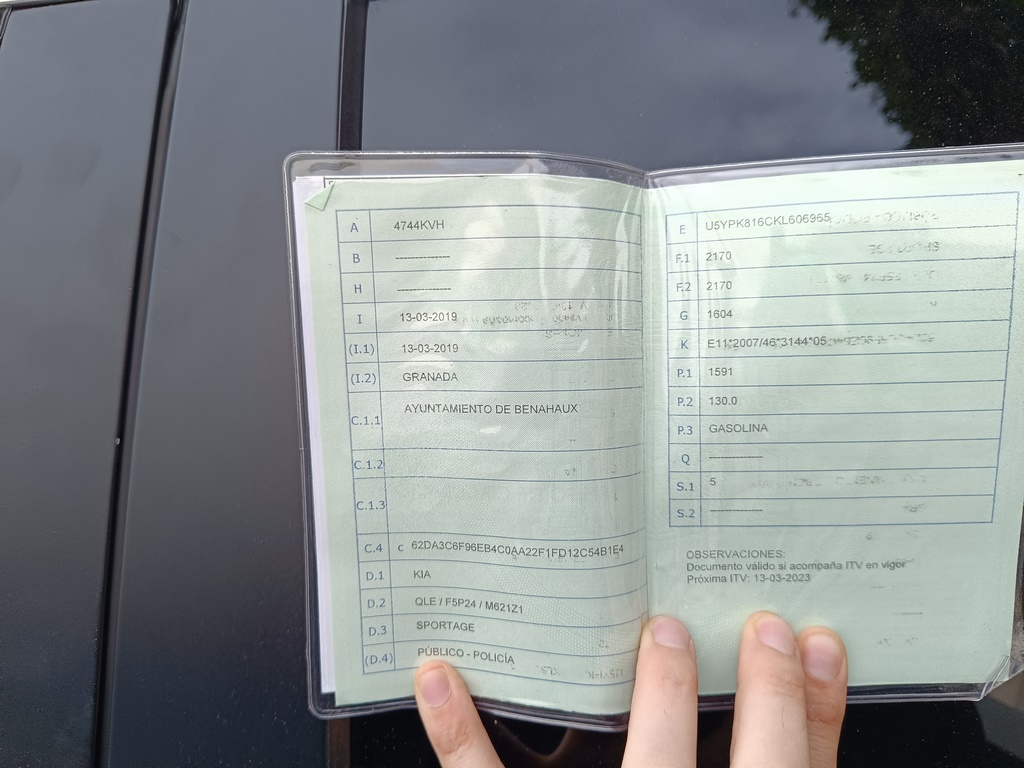 A 4744KVH
B --------------
H --------------
I 13-03-2019
(I.1) 13-03-2019
(I.2) GRANADA
C.1.1 AYUNTAMIENTO DE BENAHAUX
C.1.2
C.1.3
C.4 c 62DA3C6F96EB4C0AA22F1FD12C54B1E4
D.1 KIA
D.2 QLE / F5P24 / M621Z1
D.3 SPORTAGE
(D.4) PÚBLICO - POLICÍA
E U5YPK816CKL606965
F.1 2170
F.2 2170
G 1604
K E11*2007/46*3144*05
P.1 1591
P.2 130.0
P.3 GASOLINA
Q --------------
S.1 5
S.2 --------------
OBSERVACIONES:
Documento válido si acompaña ITV en vigor
Próxima ITV: 13-03-2023